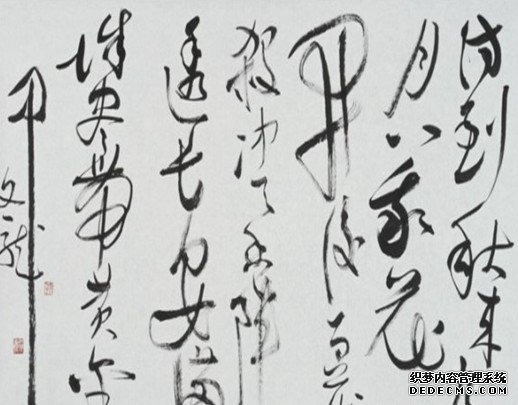 待到秋来
月八我花
开后百
杀冲天香阵
透长安满
城尽带黄金
甲
文龙
织梦内容管理系统
DEDECMS.COM